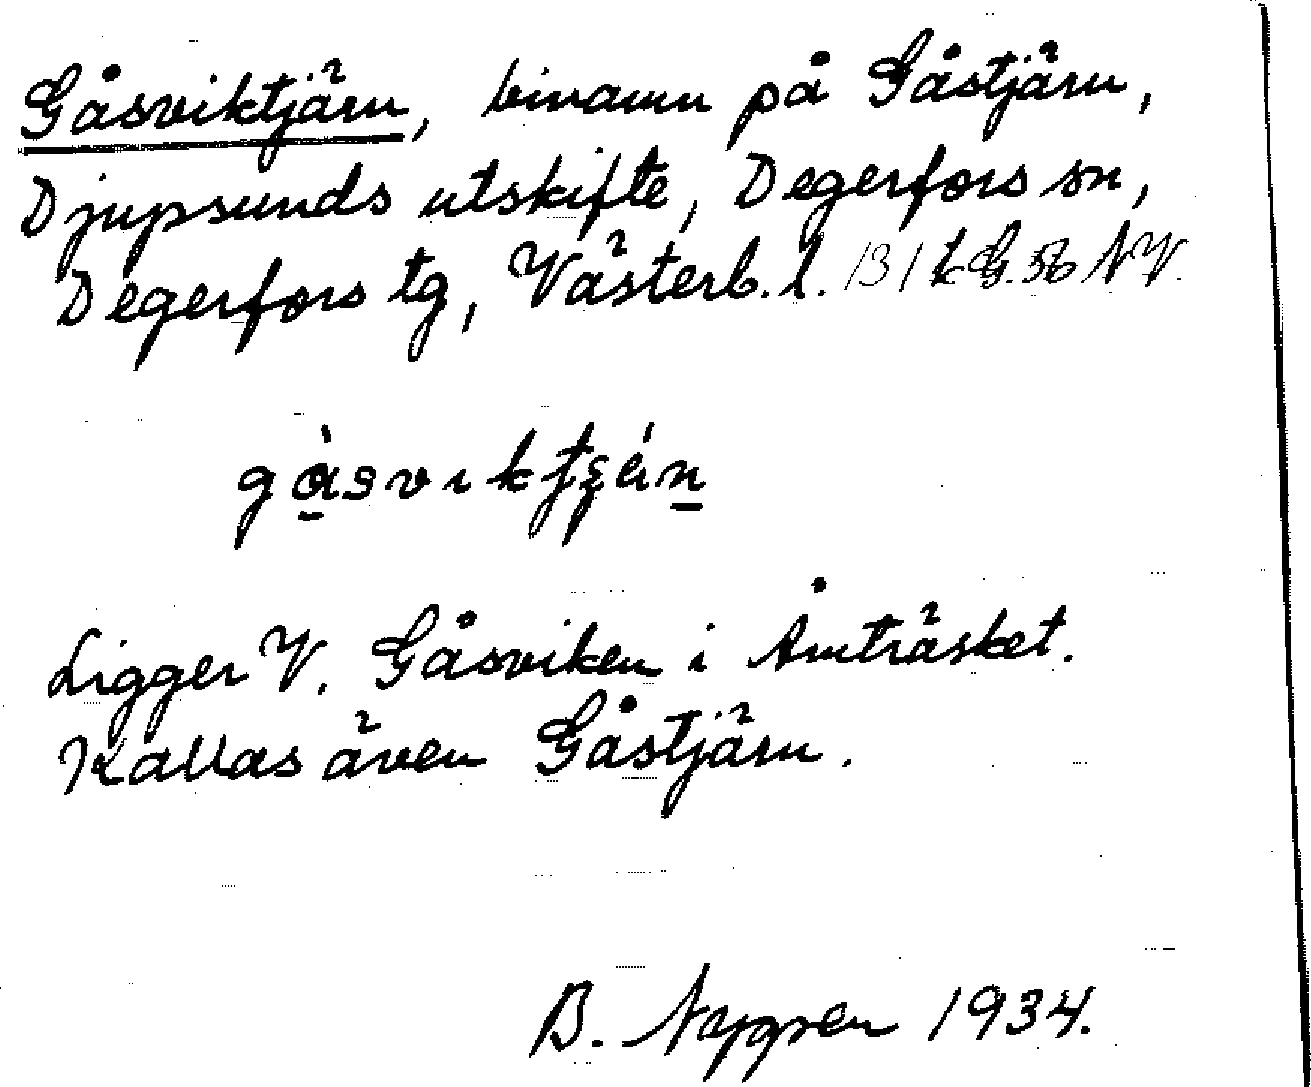 Gåsviktjärn, binamn på Gåstjärn,
Djupsunds utskifte, Degerfors sn,
Degerfors tg, Västerb. l. 131 k G. 56 NV.
Ligger V. Gåsviken i Åmträsket.
Kallas även Gåstjärn.
B. Nygren 1934.